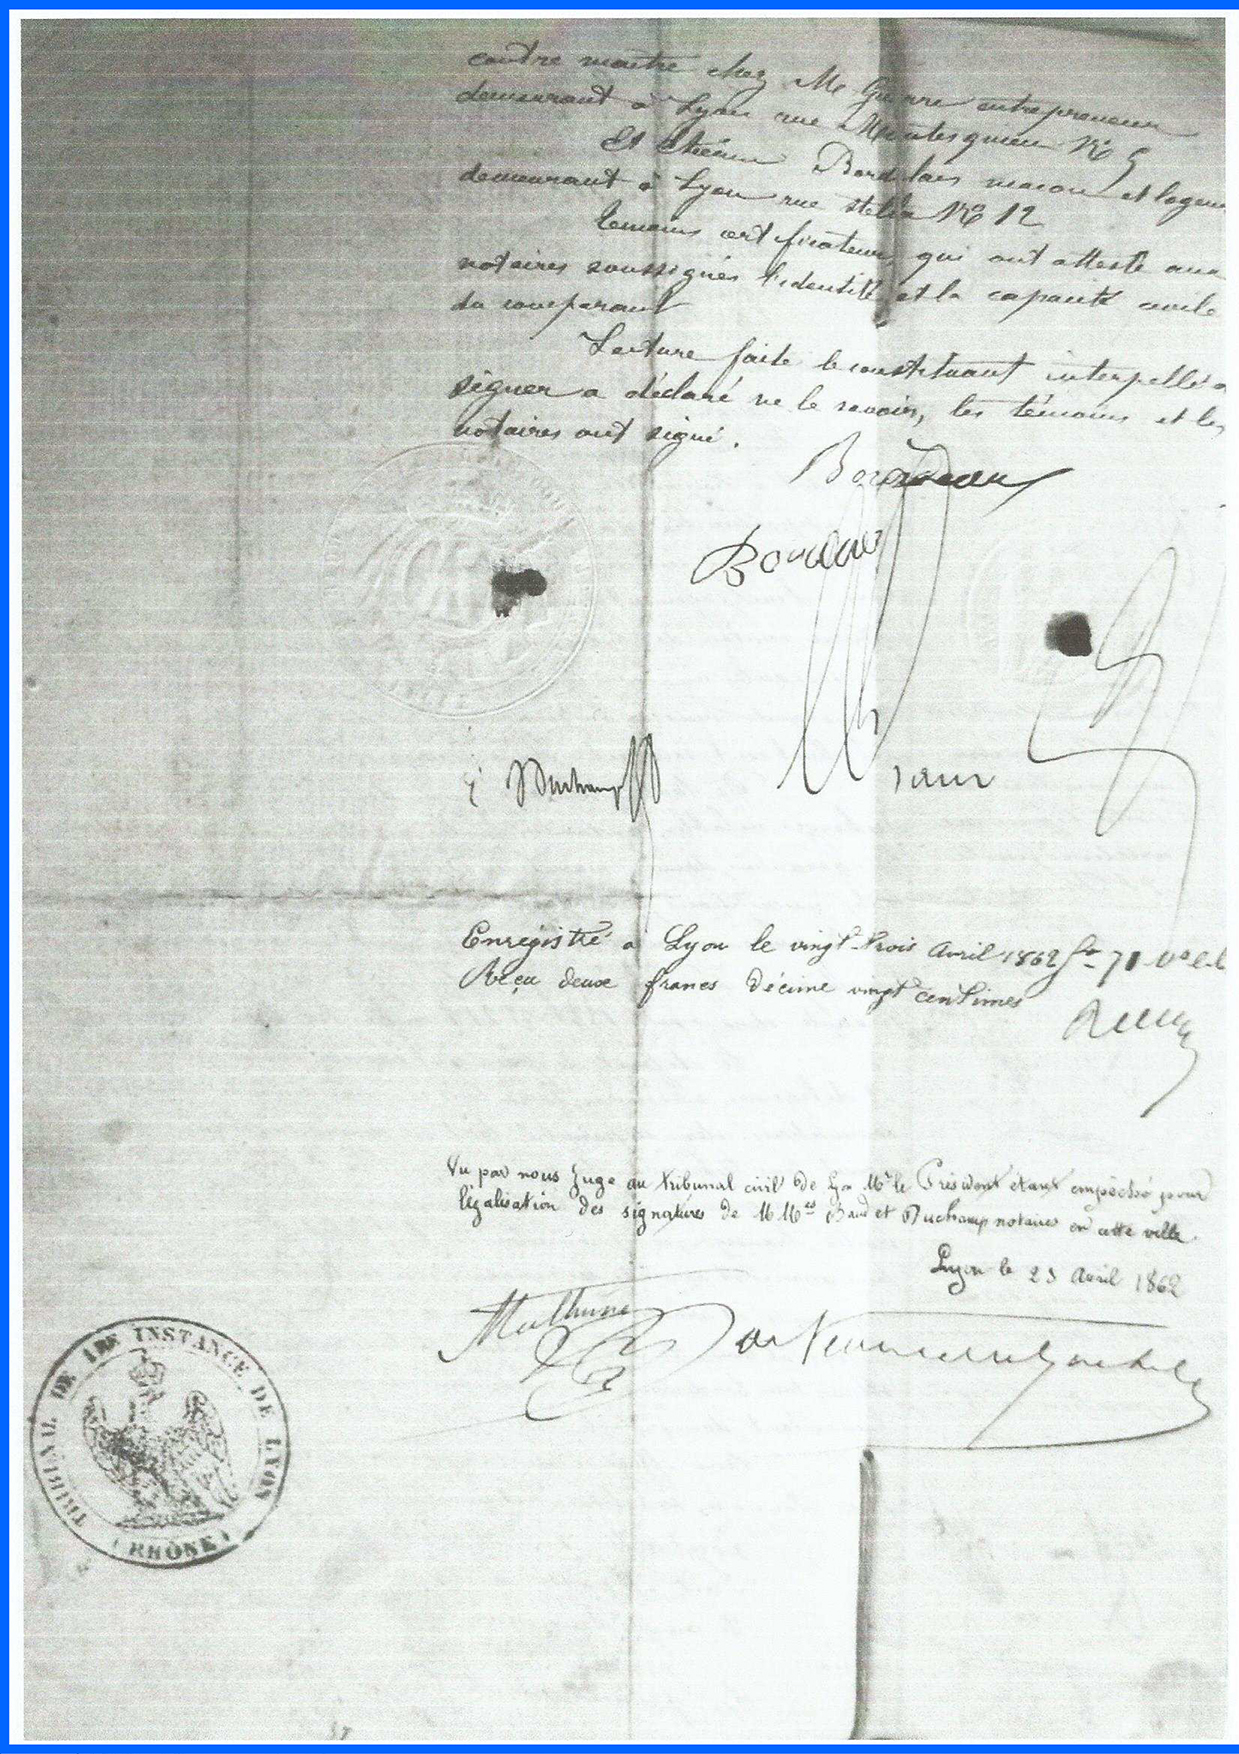 contre maitre chez Mr Guerre entrepreneur
demeurant à Lyon rue Montesquieu No 5
Et Etienne Bordelais macon et logeur
demeurant à Lyon rue Stella No 12
temoins certificateurs qui ont attesté aux
notaires soussignés l'identité et la capacité civile
du comparant
Lecture faite le constituant interpellé de
signer a déclaré ne le savoir, les témoins et les
notaires ont signé.
Duchamp
Enregistré à Lyon le vingt-trois avril 1862 fo 71 Vo
Reçu deux francs décime vingt centimes
Vu par nous Juge au tribunal civil de Lyon Mr le Président étant empêché pour
légalisation des signatures de MMes Baud et Duchamp notaires en cette ville.
Lyon le 23 Avril 1862
TRIBUNAL DE 1ERE INSTANCE DE LYON
(RHÔNE)